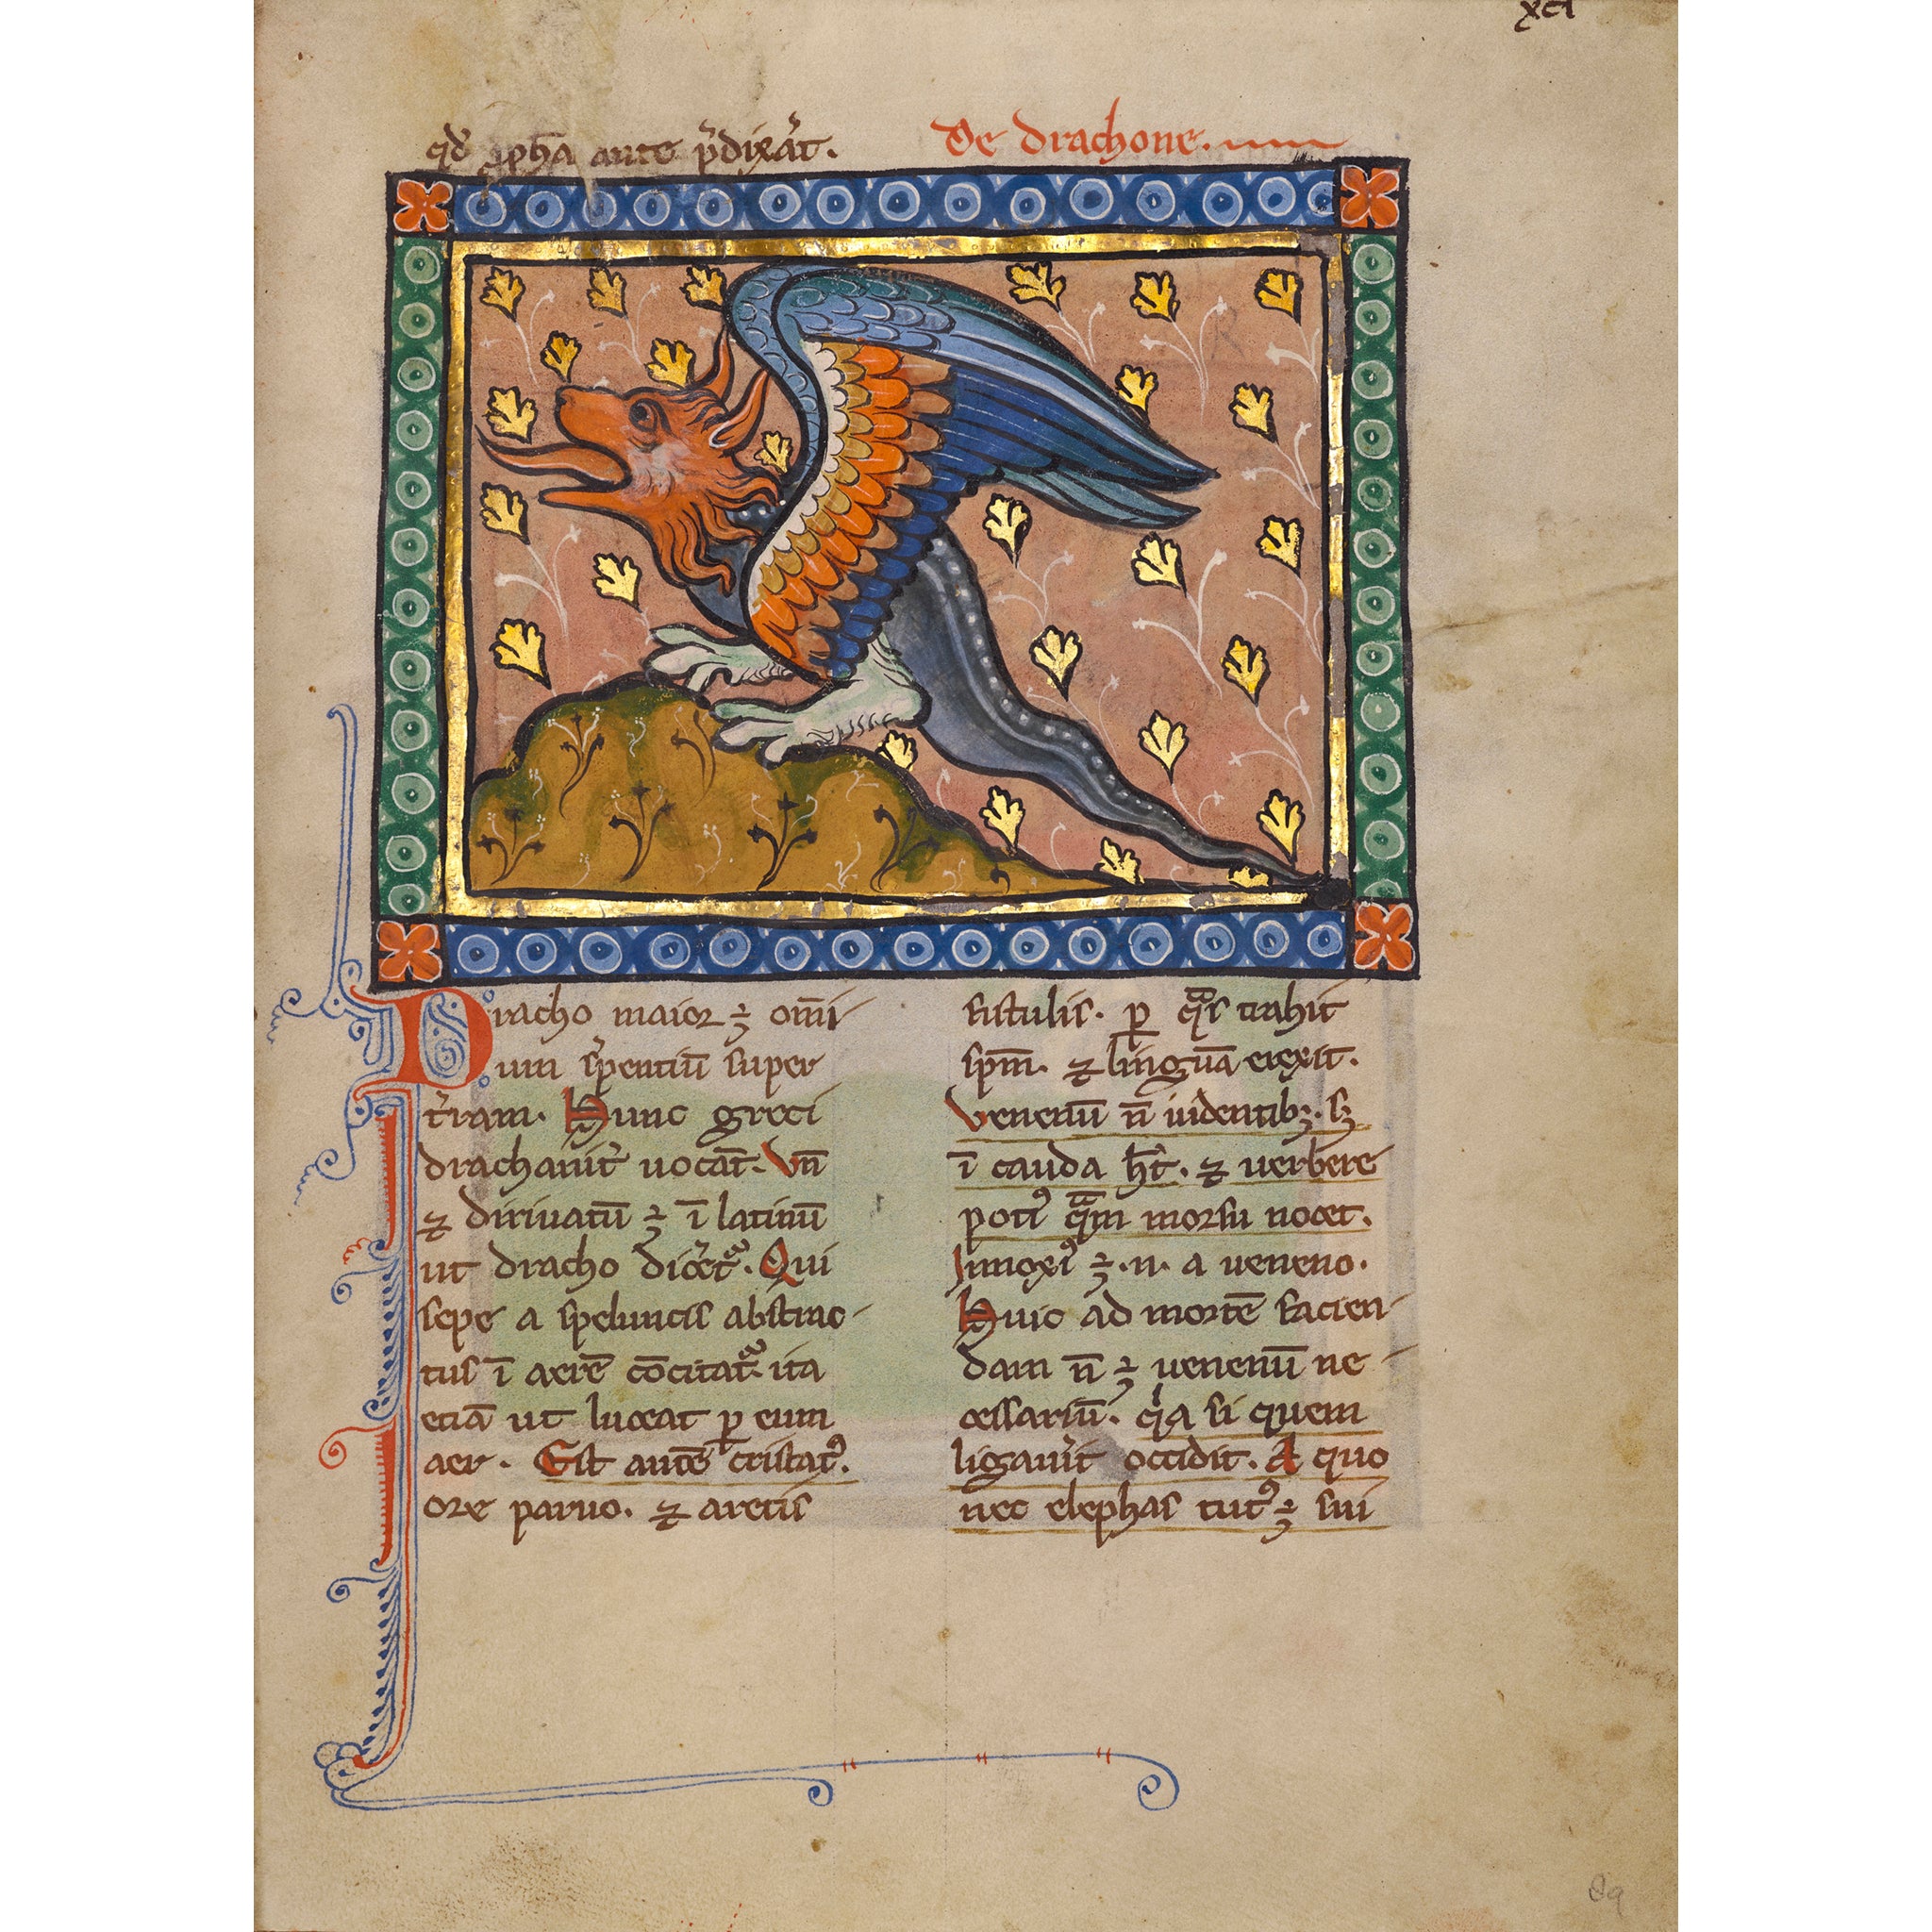 xci
qd̄ ꝓph̄a ante p̓dix̓at.
De drachone.
Dracho maior ÷ om̄i
um s̓pentiū super
t̓ram. Hunc greci
drachanit̓ uocāt. Vn̄
⁊ diriuatū ÷ ī latinū
ut dracho dicet̓. Qui
sepe a speluncis abstrac-
tus ī aerē cōcitat̓. ita
etiā ut luceat ꝑ eum
aer. Est autē cristat᾽.
ore paruo. ⁊ aretis
fistulis. ꝑ q̄s trahit
sp̄m. ⁊ linguā erexit.
Venenū n̄ in dentibꝫ. sꝫ
ī cauda h̄t. ⁊ uerbere
poti᾽ q̄m morsu nocet.
Innoxi᾽ ÷ .n. a ueneno.
Huic ad mortē facien-
dam n̄ ÷ uenenū ne-
cessariū. q̓a si quem
ligau̓it occidit. A quo
nec elephas tut᾽ ÷ sui
89